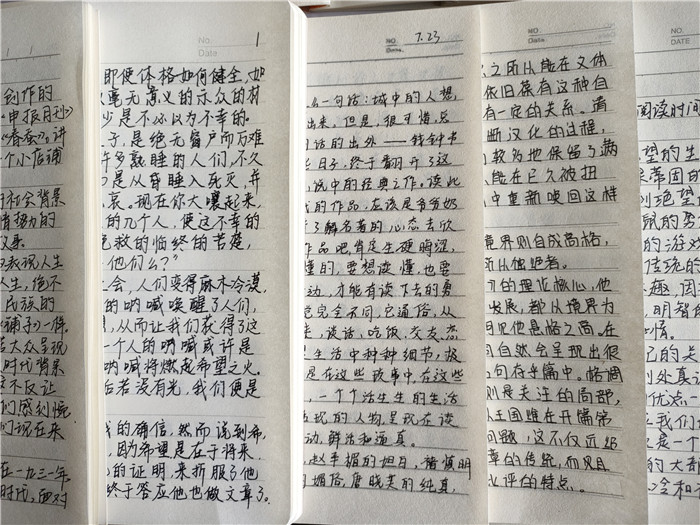 创作的
《申报月刊》
《春蚕》，讲
个小店铺
社会背景
人生，绝不
民族的
铺子》一样，
大众呈现
时代背景
不仅让
在一九三一年
No.
Date
1
即使体格如何健全，如
毫无意义的示众的材
少是不必以为不幸的。
子，是绝无窗户而万难
许多熟睡的人们，不久
是从昏睡入死灭，并
哀。现在你大嚷起来，
的几个人，使这不幸的
挽救的临终的苦楚，
他们么？”
会，人们变得麻木冷漠，
的呐喊唤醒了人们，
，从而让我们获得了这
一个人的呐喊或许是
呐喊将燃起希望之火。
后若没有光，我们便是
我的确信，然而说到希
，因为希望是在于将来，
的证明，来折服了他
终于答应他也做文章了。
NO.
Date.
7.23
么一句话：城中的人想
出来。但是，很可惜总
句话的出处——钱钟书
日子，终于翻开了这
说中的经典之作。读此
的作品，应该是
了解名著的心态去欣
作品吧肯定生硬晦涩，
懂的，要想读懂，也要
动，才能有读下去的勇
完全不同，它通俗，从
谈话、吃饭、交友、恋
生活中种种细节，报
是在这些故事中，在这些
一个个活生生的生活
现的人物，呈现在读
动，鲜活和逼真。
赵辛楣的旭日，褚慎明
媚俗，唐晓芙的纯真，
No.
Date.
之所以能在文体
依旧葆有这种自
有一定的关系。清
断汉化的过程，
较多地保留了满
能在已久被扭
中重新唤回这样
境界则自成高格，
所以独绝者。
的理论核心，他
发展，都从境界为
可见他悬格之高。在
自然会呈现出很
句存乎篇中。格调
则是关注的局部，
以王国维在开篇第
问题，这不仅迥
的传统，而仅且
批评的特点。
NO.
DATE
阅读时间
望的生
绝望
鼠的
的游戏
传统的
趣，因
明智
情。
己的
到处真
优点，一
在我们
是一个
的大
冷和